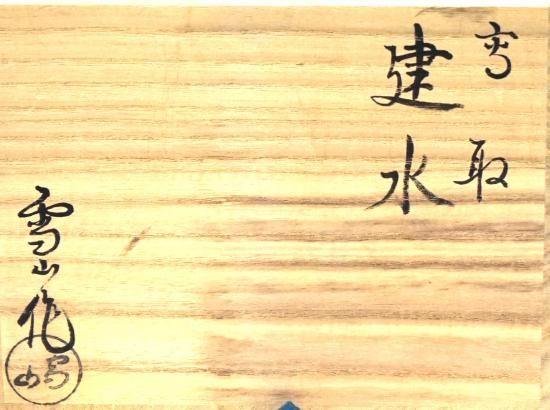 高取
建水
雪山作
雪山